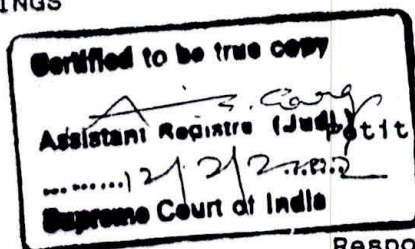 INGS
Certified to be true copy
Assistant Registra (Judl) tit
12/2/2
Supreme Court of India
Respo